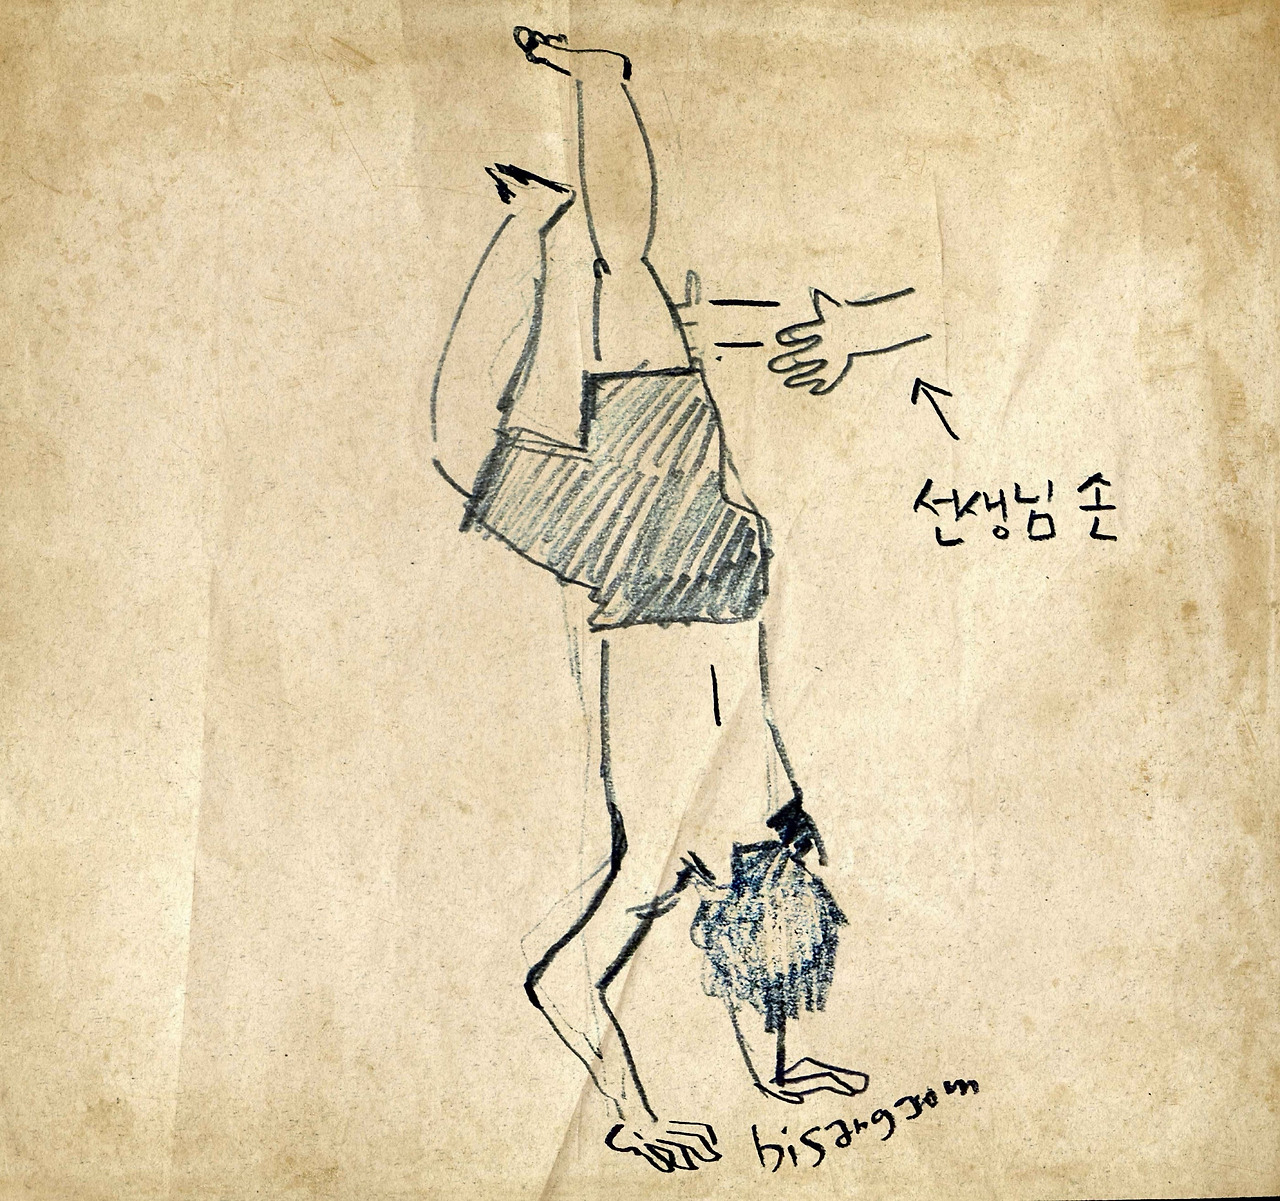 선생님 손
bisangzom